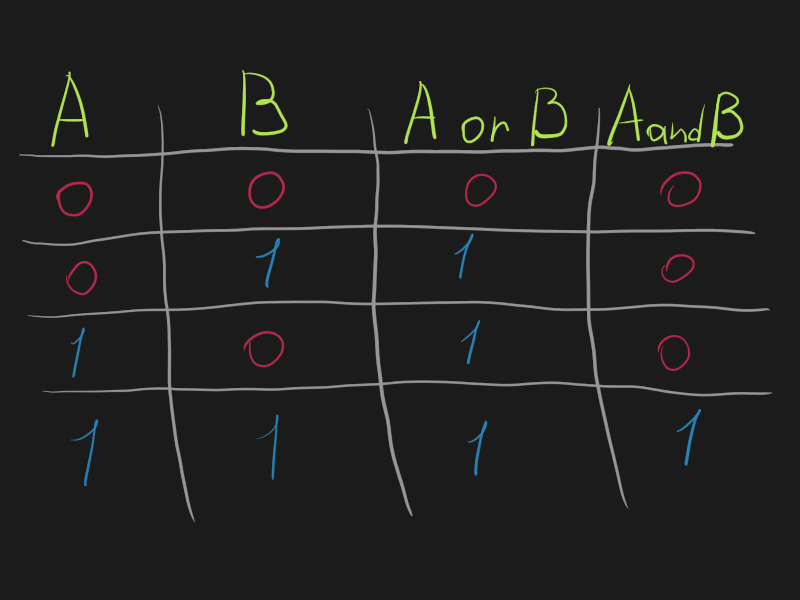 A B A or B A and B
0 0 0 0
0 1 1 0
1 0 1 0
1 1 1 1